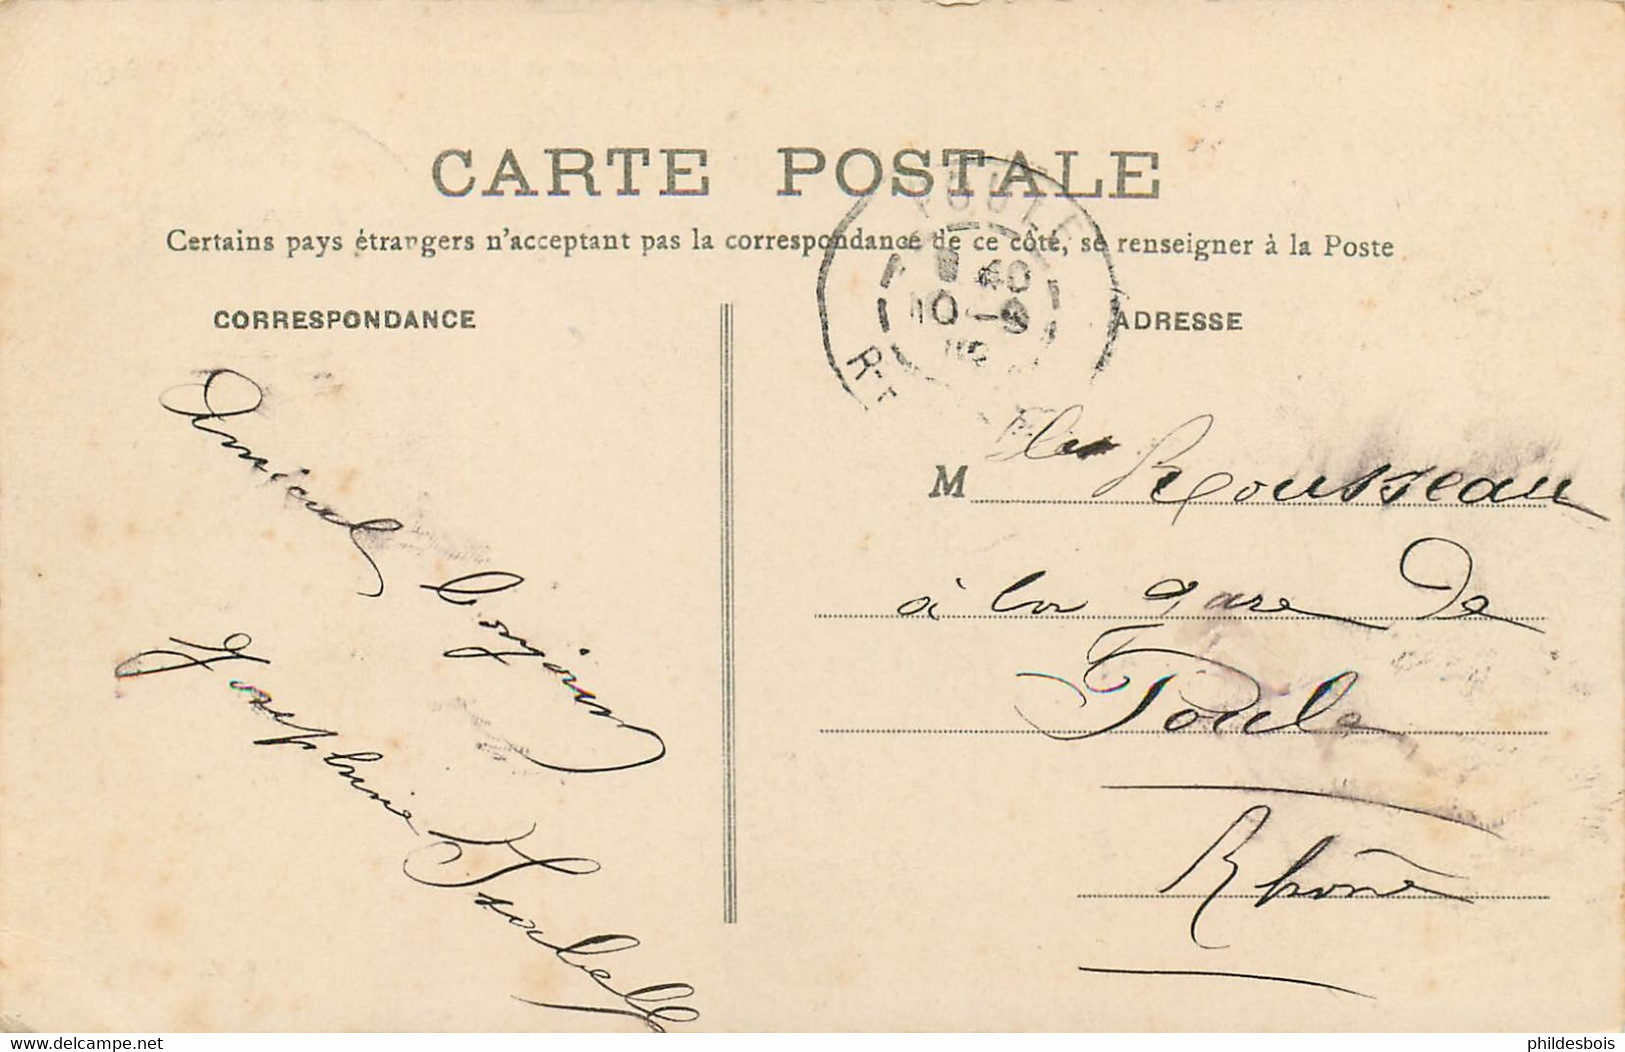 CARTE POSTALE
Certains pays étrangers n'acceptant pas la correspondance de ce côté, se renseigner à la Poste
CORRESPONDANCE
ADRESSE
Amical bonjour
Josephine Isabelle
M Rousseau
à la gare de
Poule
Rhône
10-9
www.delcampe.net
phildesbois